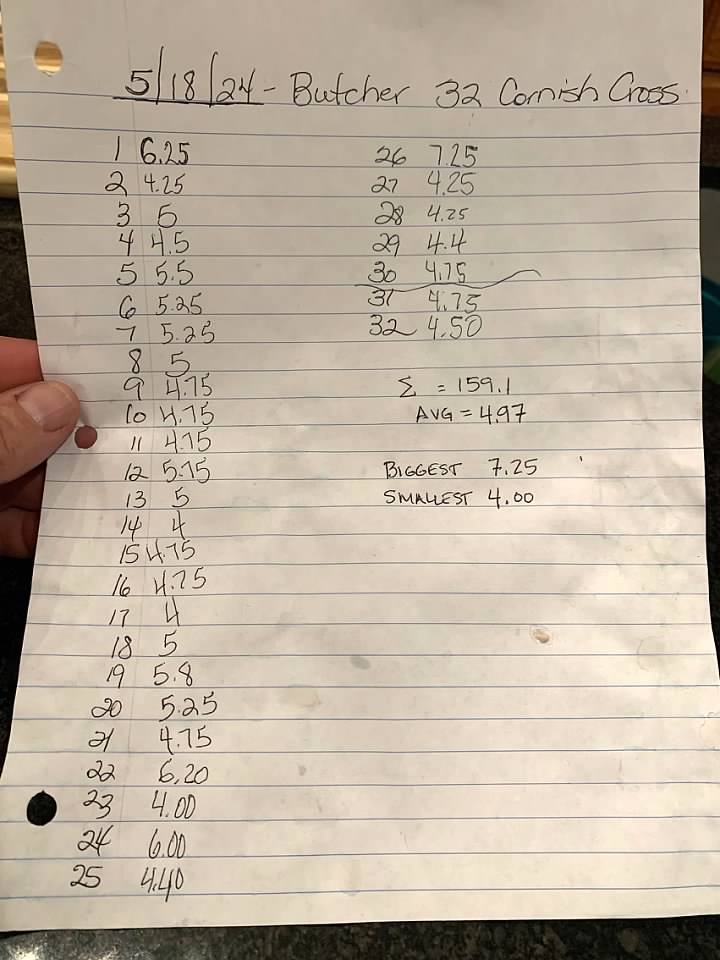 5/18/24 - Butcher 32 Cornish Cross
1 6.25
2 4.25
3 5
4 4.5
5 5.5
6 5.25
7 5.25
8 5
9 4.75
10 4.75
11 4.75
12 5.75
13 5
14 4
15 4.75
16 4.75
17 4
18 5
19 5.8
20 5.25
21 4.75
22 6.20
23 4.00
24 6.00
25 4.40
26 7.25
27 4.25
28 4.25
29 4.4
30 4.75
31 4.75
32 4.50
Σ = 159.1
AVG = 4.97
BIGGEST 7.25
SMALLEST 4.00